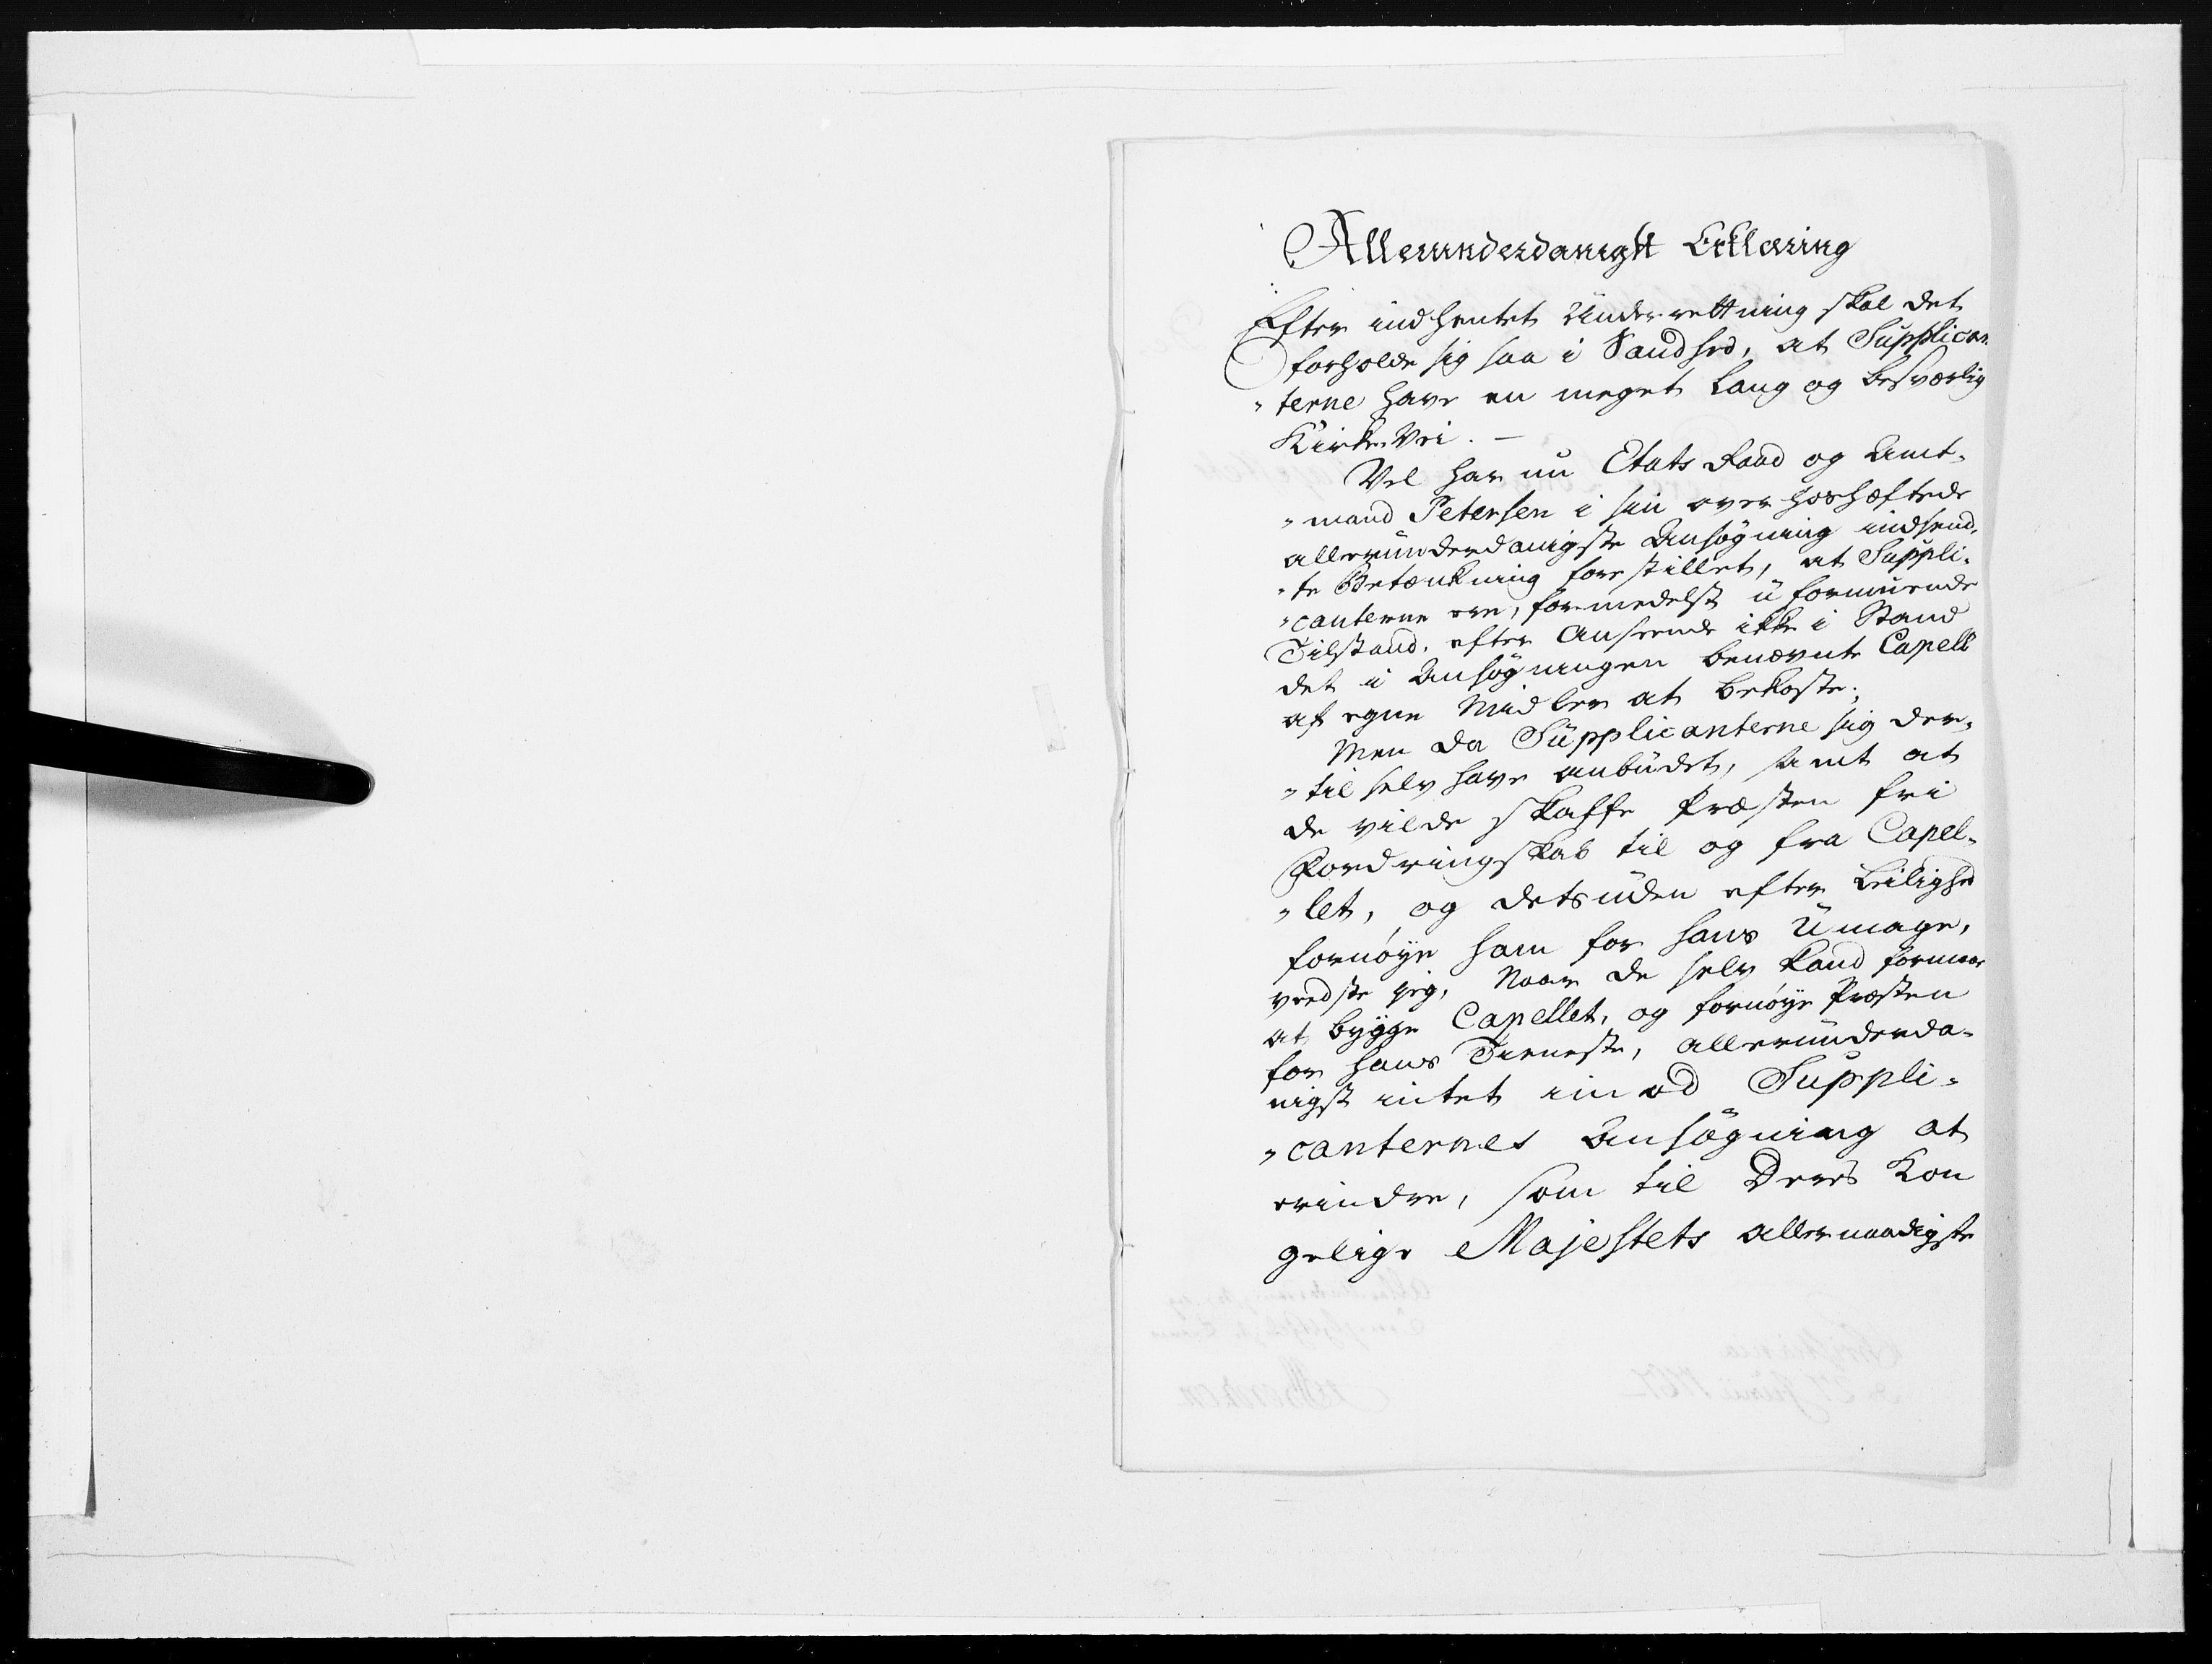 Allerunderdanigst Erklæring
Efter indhentet Underrettning skal det
forholde sig saa i Sandhed, at Supplican
„terne have en meget lang og besværlig
Kirke Vei. –
Vel har nu Etats Raad og Amt-
„mand Petersen i sin over hoshæftede
allerunderdanigste Ansøgning indsend-
„te Betænkning forestillet, at Suppli-
„canterne ere, formedelst uformuende
Tilstand, efter Anseende ikke i Stand
det i Ansøgningen benævnte Capell
af egne Midler at bekoste;
Men da Supplicanterne sig der-
„til selv have anbudet, samt at
de vilde skaffe Præsten frie
Fordringskab til og fra Capel-
„let, og detsuden efter Leilighed
fornøye ham for hans Umage,
veedste jeg, Naar de selv kand formaae
at bygge Capellet, og fornøye Præsten
for hans Tieneste, allerunderda-
nigst intet imod Suppli-
„canternes Ansøgning at
erindre, som til Deres Kon
gelige Majestets allernaadigste